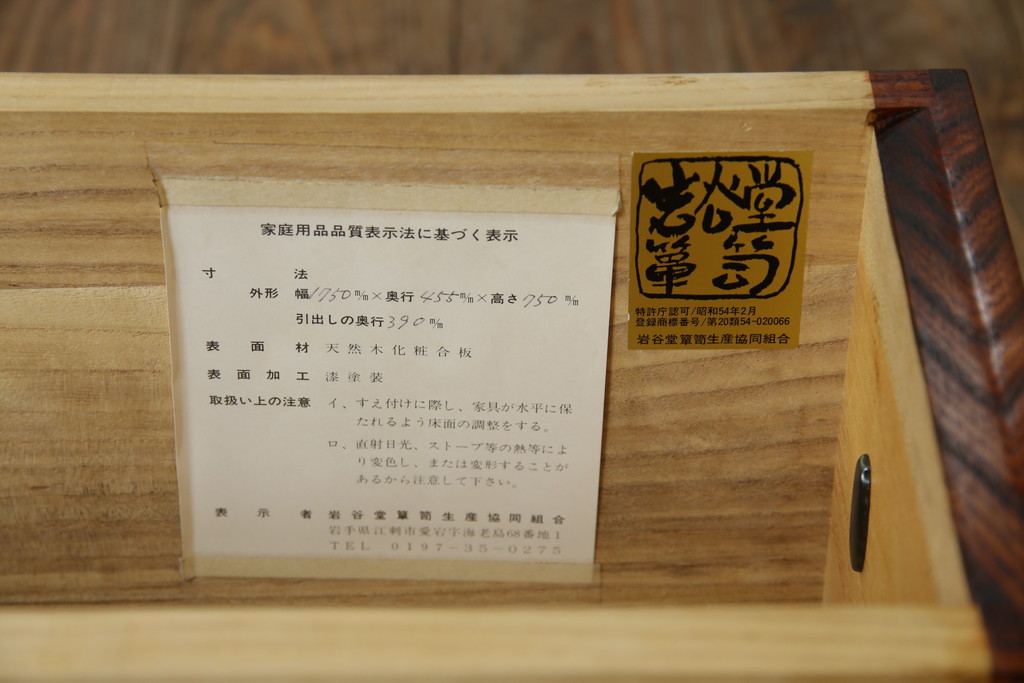 家庭用品品質表示法に基づく表示
寸法
外形 幅1750㎜×奥行455㎜×高さ750㎜
引出しの奥行390㎜
表面材 天然木化粧合板
表面加工 漆塗装
取扱い上の注意 イ、すえ付けに際し、家具が水平に保
たれるよう床面の調整をする。
ロ、直射日光、ストーブ等の熱等によ
り変色し、または変形することが
あるから注意して下さい。
表示者 岩谷堂簞笥生産協同組合
岩手県江刺市愛宕字海老島68番地1
TEL 0197-35-0275
岩谷堂
簞笥
特許庁認可/昭和54年2月
登録商標番号/第20類54-020066
岩谷堂簞笥生産協同組合